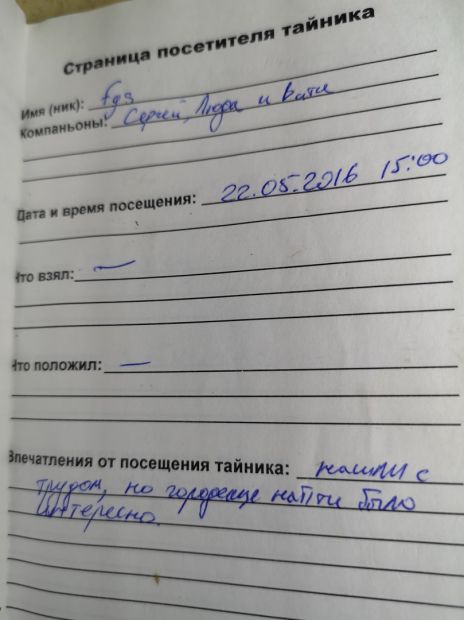 Страница посетителя тайника
Имя (ник): fgs
Компаньоны: Сергей, Люда и Катя
Дата и время посещения: 22.05.2016 15:00
Что взял: —
Что положил: —
Впечатления от посещения тайника: нашли с
трудом, но найти было
интересно.